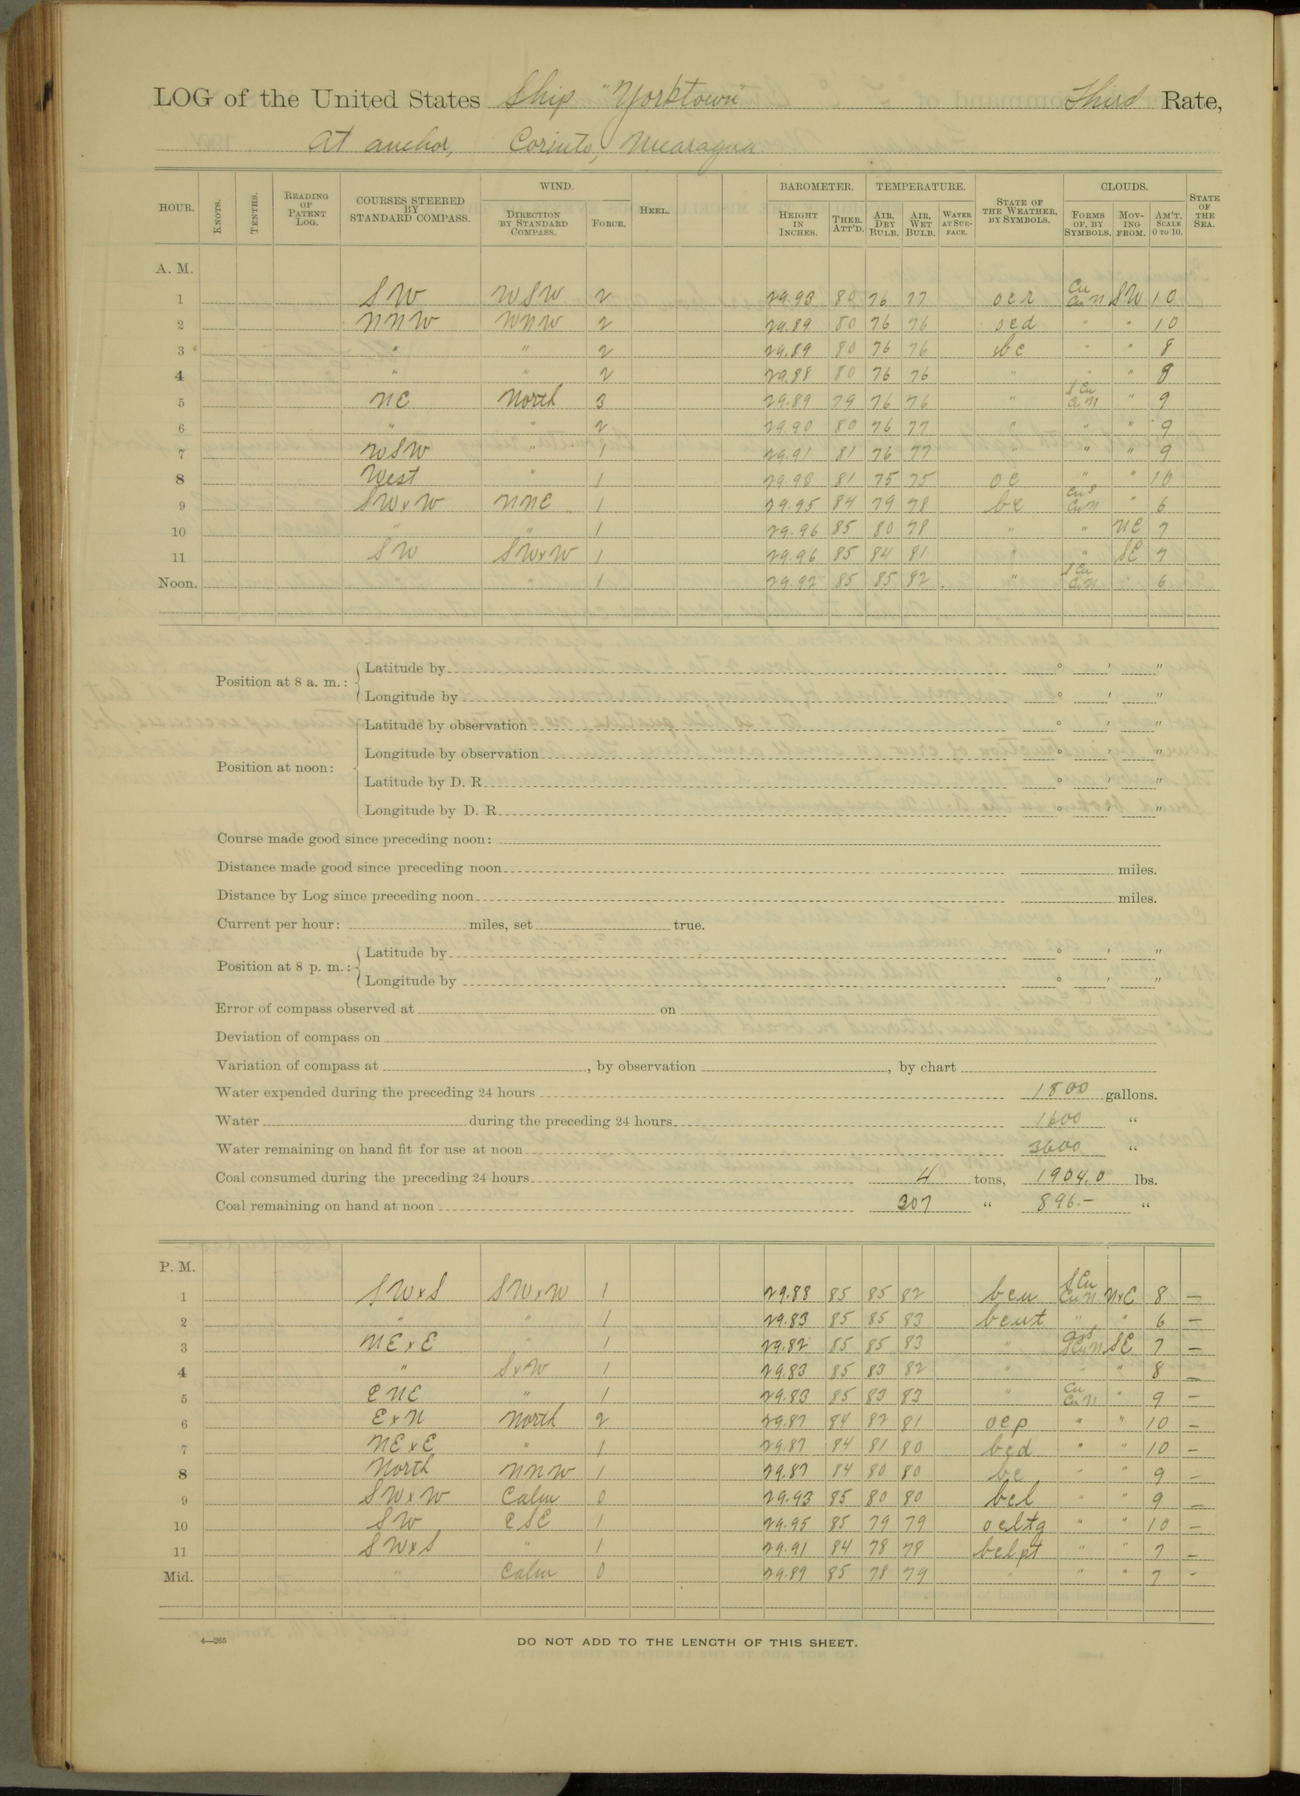 LOG of the United States Ship "Yorktown" Third Rate,
At anchor, Corinto, Nicaragua
HOUR. KNOTS. TENTHS. READING OF PATENT LOG. COURSES STEERED BY STANDARD COMPASS. WIND. DIRECTION BY STANDARD COMPASS. FORCE. HEEL. BAROMETER. HEIGHT IN INCHES. THER. ATT'D. TEMPERATURE. AIR, DRY BULB. AIR, WET BULB. WATER AT SURFACE. STATE OF THE WEATHER, BY SYMBOLS. CLOUDS. FORMS OF, BY SYMBOLS. MOVING FROM. AM'T. SCALE 0 TO 10. STATE OF THE SEA.
A. M.
1 SW WSW 2 29.93 80 76 77 ocr Cu Cu N SW 10
2 NNW WNW 2 29.89 80 76 76 ocd " " 10
3 " " 2 29.89 80 76 76 bc " " 8
4 " " 2 29.88 80 76 76 " " " 8
5 NE North 3 29.89 79 76 76 " S Cu Cu N " 9
6 " " 2 29.90 80 76 77 " " " 9
7 WSW " 1 29.91 81 76 77 " " " 9
8 West " 1 29.98 81 75 75 oc " " 10
9 SWxW NNE 1 29.95 84 79 78 bc Cu S Cu N " 6
10 " " 1 29.96 85 80 78 " " NE 7
11 SW SWxW 1 29.96 85 84 81 " " SE 7
Noon. " " 1 29.92 85 85 82 " S Cu Cu N " 6
Position at 8 a. m.: Latitude by ° ′ ″
Longitude by ° ′ ″
Latitude by observation ° ′ ″
Longitude by observation ° ′ ″
Position at noon:
Latitude by D. R. ° ′ ″
Longitude by D. R. ° ′ ″
Course made good since preceding noon:
Distance made good since preceding noon miles.
Distance by Log since preceding noon miles.
Current per hour: miles, set true.
Position at 8 p. m.: Latitude by ° ′ ″
Longitude by ° ′ ″
Error of compass observed at on
Deviation of compass on
Variation of compass at , by observation , by chart
Water expended during the preceding 24 hours 1800 gallons.
Water during the preceding 24 hours 1600 "
Water remaining on hand fit for use at noon 3600 "
Coal consumed during the preceding 24 hours 4 tons, 1904.0 lbs.
Coal remaining on hand at noon 307 " 896.- "
P. M.
1 SWxS SWxW 1 29.88 85 85 82 bcu S Cu Cu N NxE 8 –
2 " " 1 29.83 85 85 83 bcut " " 6 –
3 NExE " 1 29.82 85 85 83 " SE 7 –
4 " SxW 1 29.83 85 83 82 " " " 8 –
5 ENE " 1 29.83 85 83 83 " Cu Cu N " 9 –
6 ExN North 2 29.87 84 82 81 ocp " " 10 –
7 NExE " 1 29.87 84 81 80 bcd " " 10 –
8 North NNW 1 29.87 84 80 80 bc " " 9 –
9 SWxW Calm 0 29.93 85 80 80 bcl " " 9 –
10 SW ESE 1 29.95 85 79 79 ocltq " " 10 –
11 SWxS " 1 29.91 84 78 78 bclpt " " 7 –
Mid. " Calm 0 29.89 85 78 79 " " " 7 –
4—265
DO NOT ADD TO THE LENGTH OF THIS SHEET.